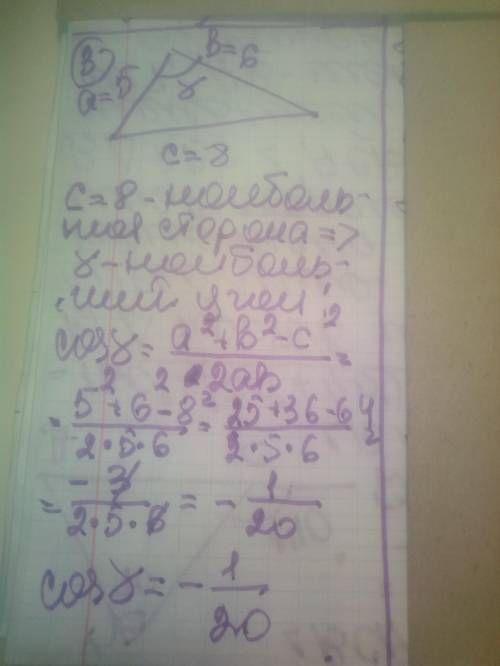 в) b=6
a=5 γ
c=8
c=8 - наиболь-
шая сторона =>
γ - наиболь-
ший угол!
cosγ = (a²+b²-c²)/(2ab) =
= (5²+6²-8²)/(2·5·6) = (25+36-64)/(2·5·6) =
= (-3)/(2·5·6) = -1/20
cosγ = -1/20